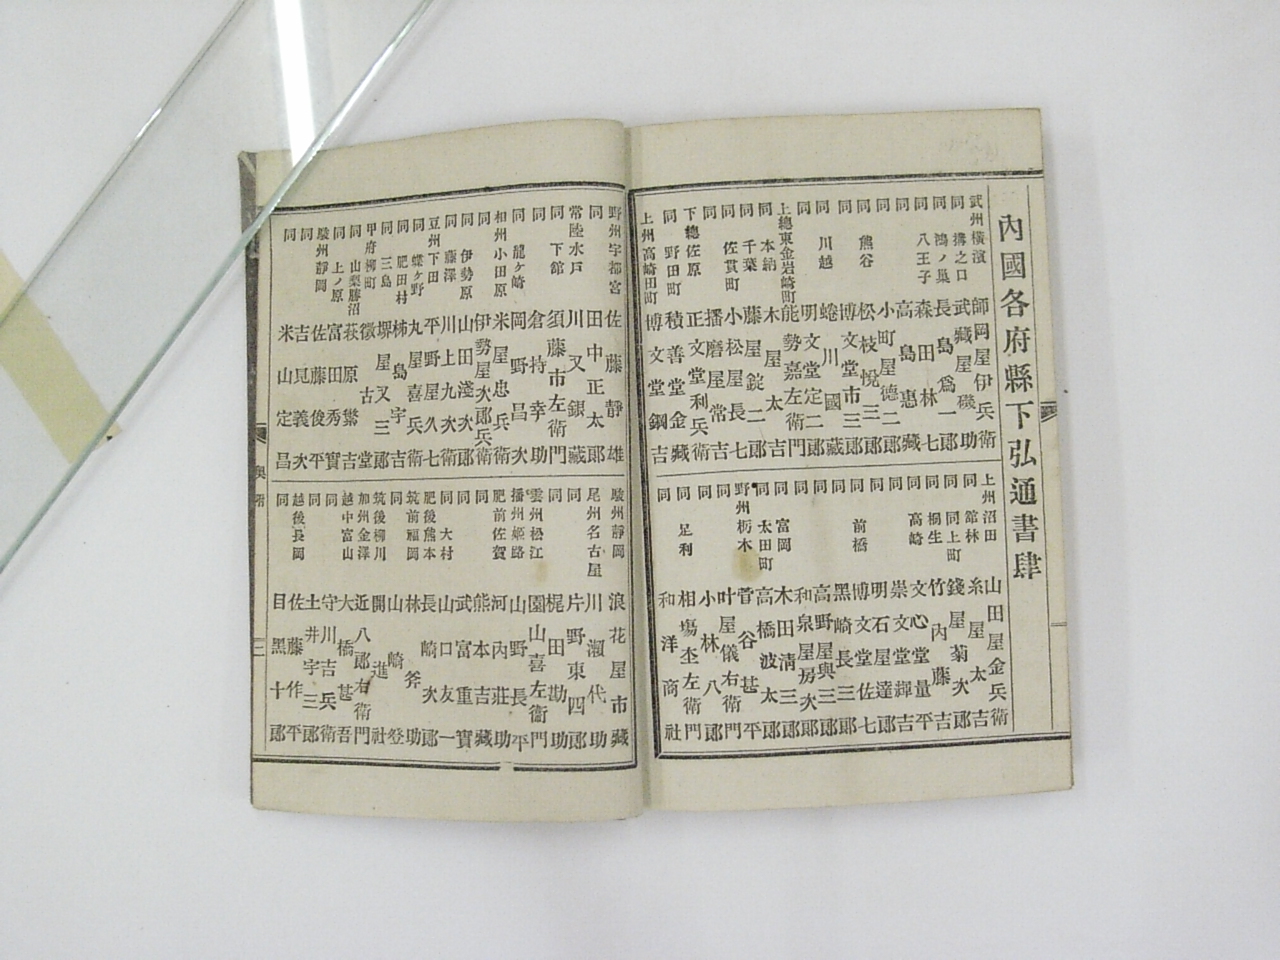 內國各府縣下弘通書肆
武州橫濱 師岡屋伊兵衛
同 溝之口 武藏屋磯助
同 鴻ノ巢 長島爲一郎
同 八王子 森田林七
同 高島惠藏
同 小町屋德二郎
同 熊谷 松枝悅三郎
同 博文堂市三郎
同 川越 蜷川國藏
同 明文堂定二郎
上總東金岩崎町 能勢嘉左衛門
同 本納 木屋太吉
同 千葉 藤屋錠二郎
同 佐貫町 小松屋長七
同 播磨屋常吉
下總佐原 正文堂利兵衛
同 野田町 積善堂金藏
上州高崎田町 博文堂鋼吉
上州沼田 山田屋金兵衛
同 館林 糸屋太吉
同 同上町 錢屋菊次郎
同 桐生 竹內藤吉
同 高崎 文心堂量平
同 崇文堂輝吉
同 明石屋達七
同 前橋 博文堂佐七
同 黑崎長三郎
同 高野屋與三郎
同 和泉屋房次郎
同 富岡 木田淸三郎
同 太田町 高橋波太郎
野州栃木 菅谷甚平
同 叶屋儀右衛門
同 小林八郎
同 足利 相塲杢左衛門
同 和洋商社
野州宇都宮 佐藤靜雄
同 田中正太郎
常陸水戶 川又銀藏
同 下館 須藤市左衛門
同 倉持幸助
同 龍ケ崎 岡野昌次
相州小田原 米屋忠兵衛
同 伊勢屋次郎兵衛
同 伊勢原 山田淺次郎
同 藤澤 川上九次衛
豆州下田 平野屋久七
同 蝶ケ野 丸屋喜兵衛
同 肥田村 柿島宇吉
同 三島 堺屋又三郎
甲府柳町 徵古堂
同 山梨勝沼 萩原繁吉
同 上ノ原 富田秀實
駿州靜岡 佐藤俊平
同 吉見義次
同 米山定昌
駿州靜岡 浪花屋市藏
尾州名古屋 川瀨代助
同 片野東四郎
同 梶田勘助
雲州松江 園山喜左衞門
播州姬路 山野長平
肥前佐賀 河內莊助
同 熊本吉藏
同 大村 武富重實
同 山口友一
肥後熊本 長崎次郎
筑前福岡 林斧助
同 山崎登
筑後柳川 開進社
加州金澤 近八郎右衛門
越中富山 大橋甚吾
同 守川吉兵衛
同 土井宇三郎
越後長岡 佐藤作平
同 目黑十郎
奧附
三